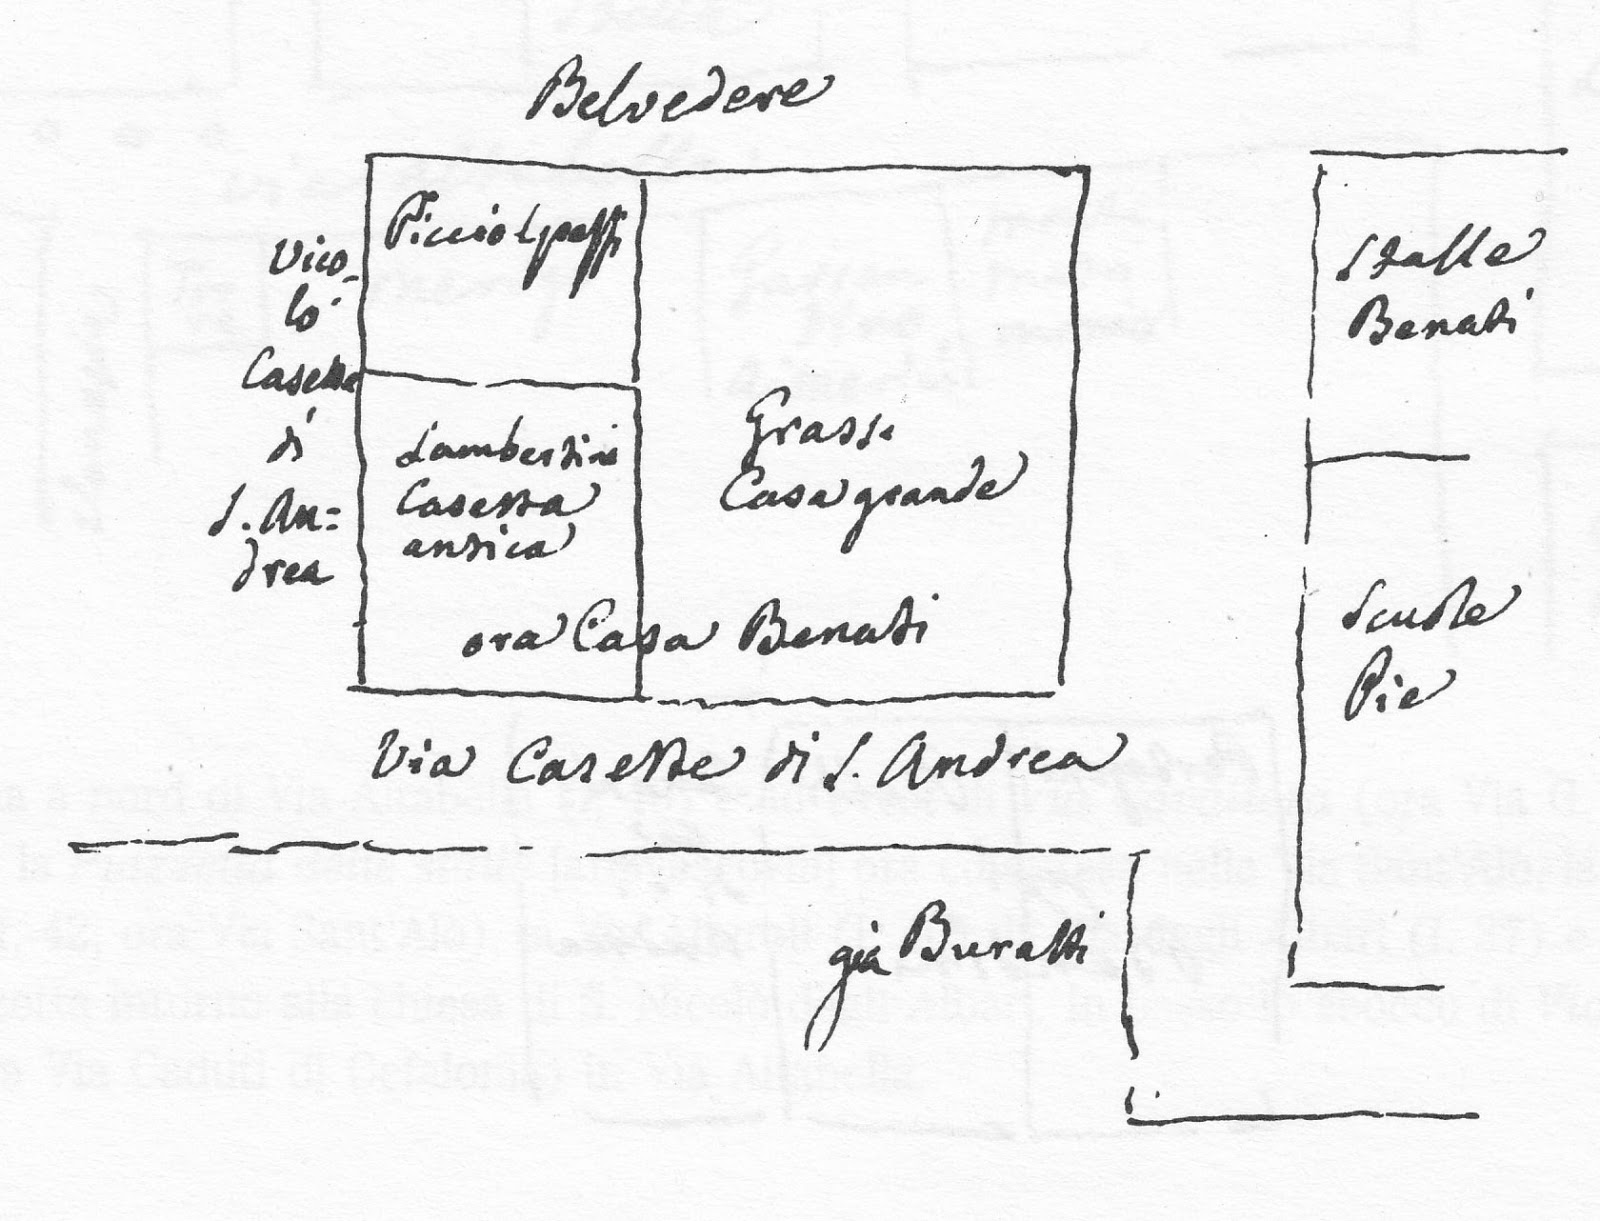 Belvedere
Picciolpassi
Vico-
lo
Casette
di
S. An=
drea
Lambertini
Casetta
antica
Grassi
Casa grande
ora Casa Benati
Stalle
Benati
Scuole
Pie
Via Casette di S. Andrea
già Buratti